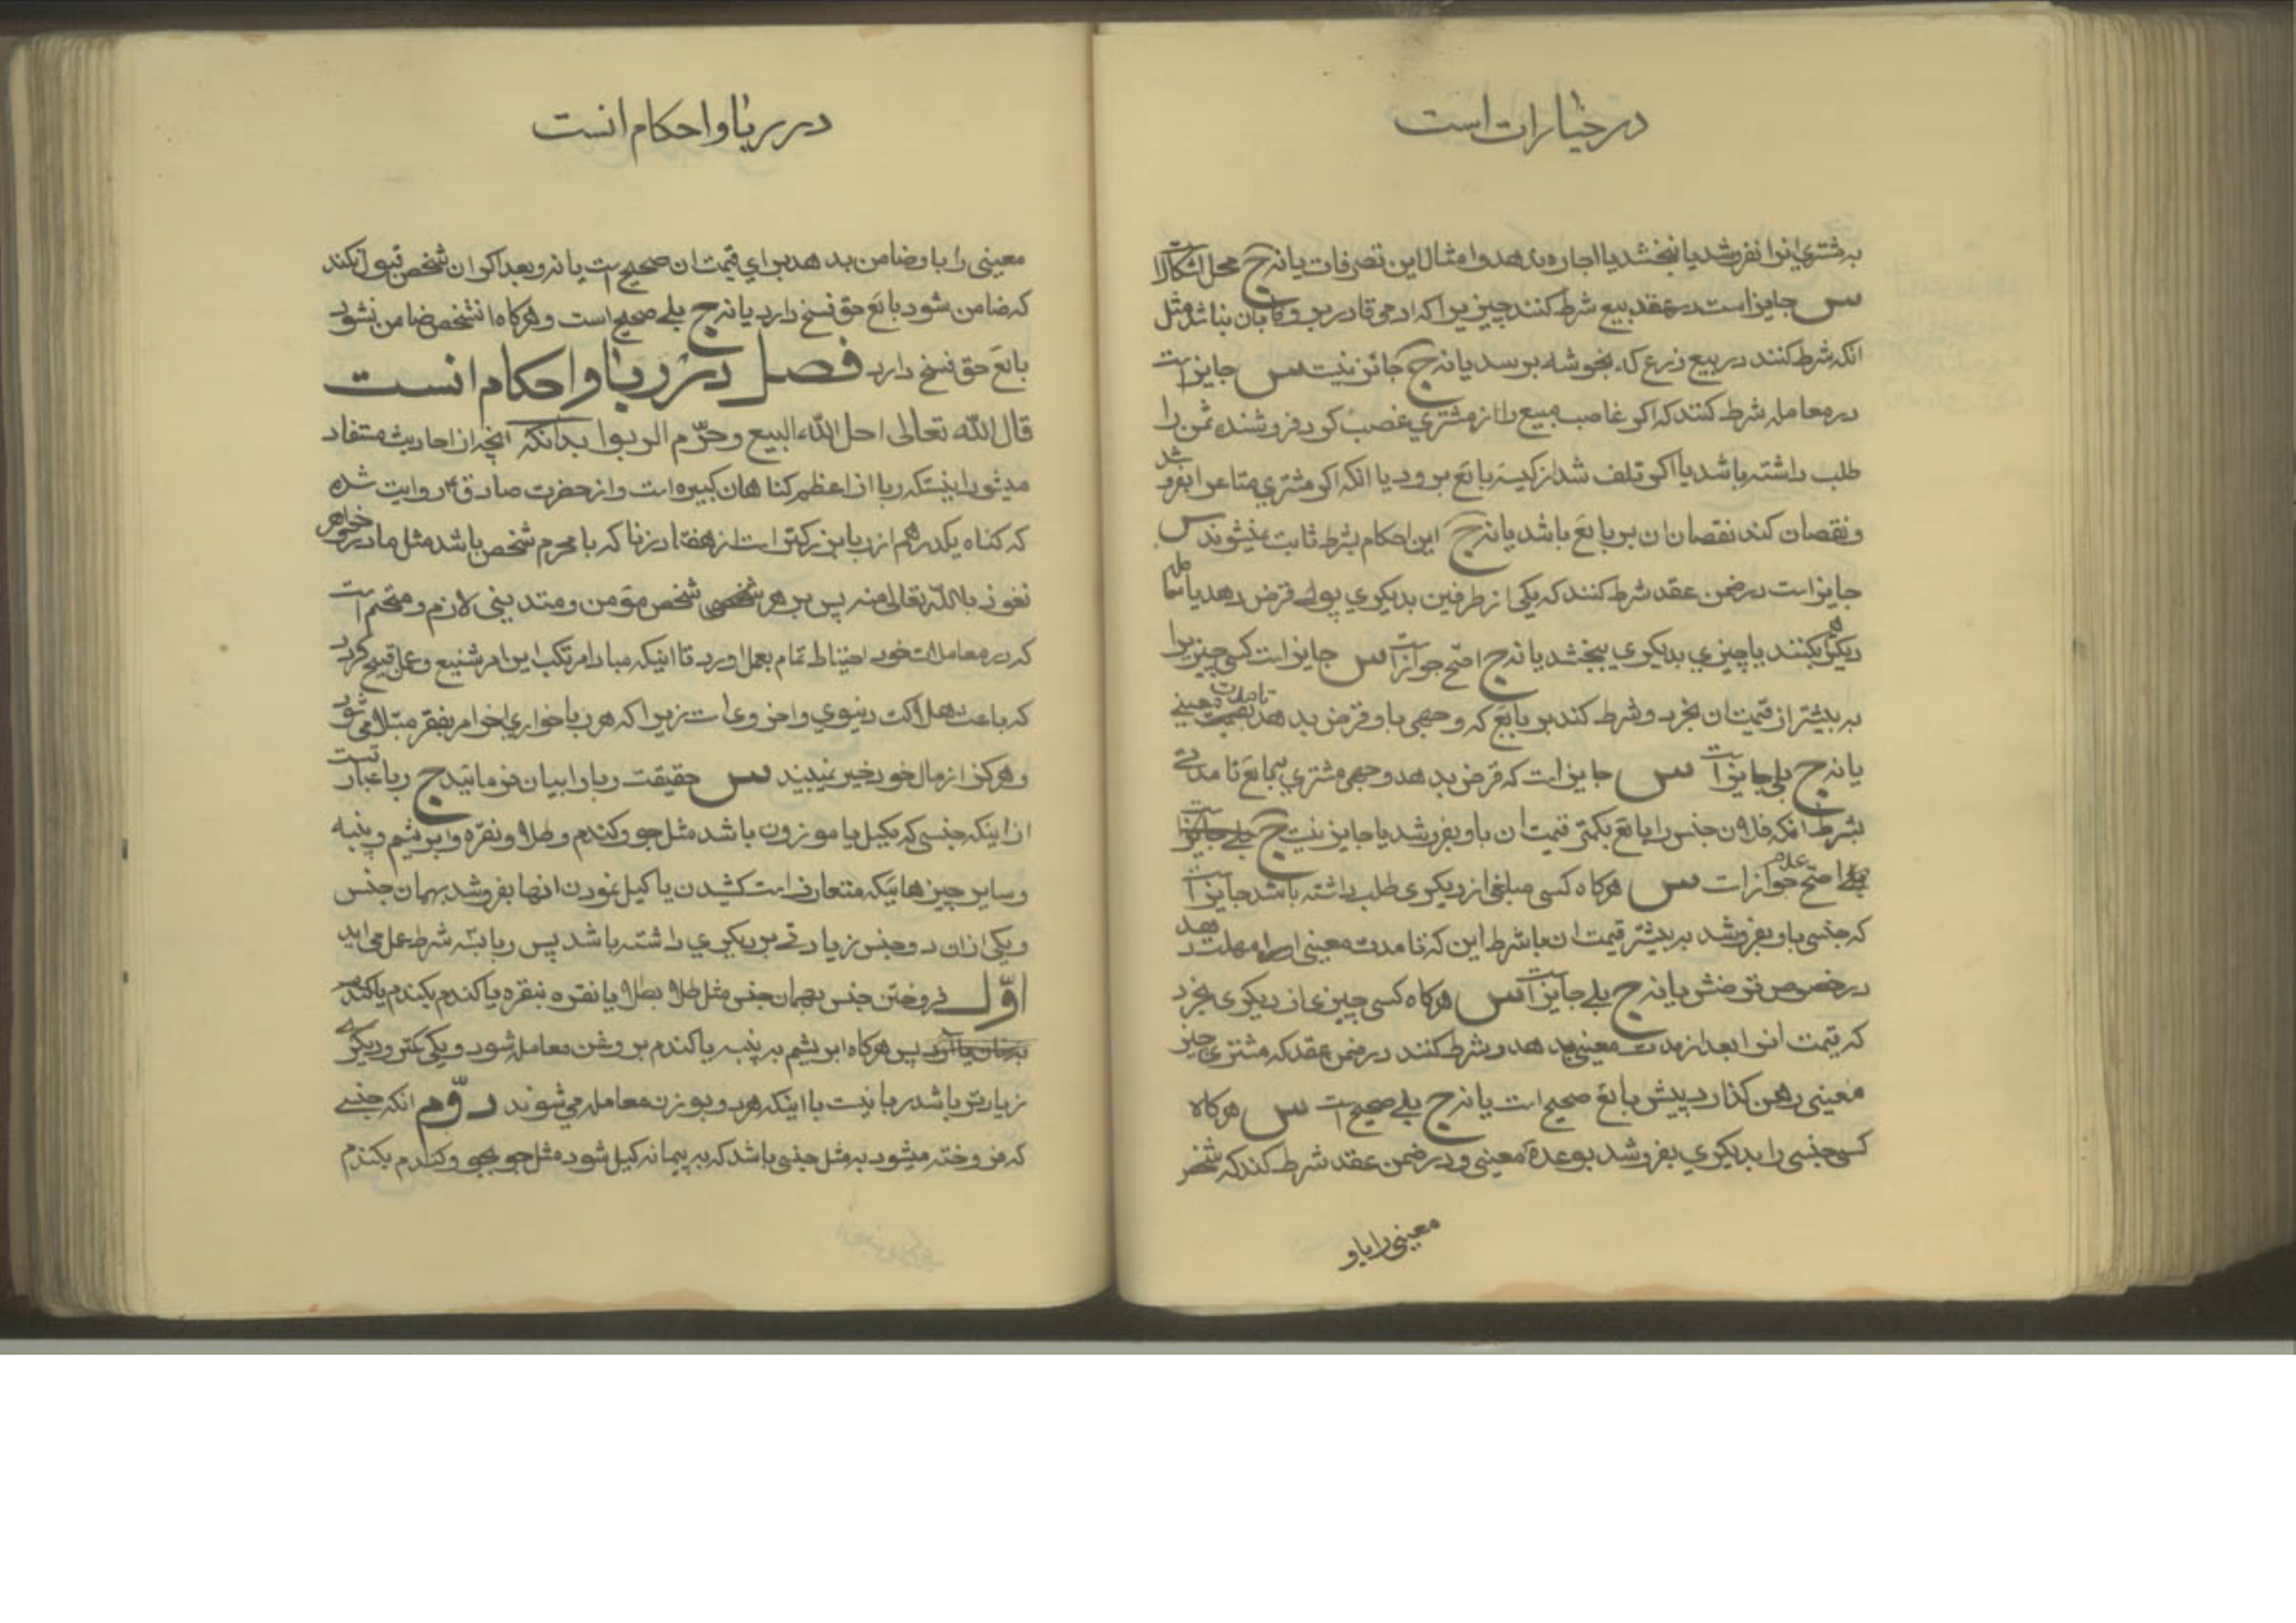 در خیارات است
به مشتری انرا نفروشد یا نبخشد یا اجاره ندهد و امثال این تصرفات یا نه ج محل اشکال است
س جایز است در عقد بیع شرط کنند چیزیرا که ادمی قادر بر وکایان نباشد مثل
انکه شرط کنند در بیع زرع که بخوشه برسد یا نه ج جائز نیست س جایز است
در معامله شرط کنند که اکر غاصب مبیع را از مشتری غصب کرد فروشنده ثمن را
طلب داشته باشد یا اکر تلف شد از کیسه بایع برود یا انکه اکر مشتری متاعرا بفروشد
و نقصان کند نقصان ان بر بایع باشد یا نه ج این احکام بشرط ثابت نمیشوند س
جایز است در ضمن عقد شرط کنند که یکی از طرفین بدیکری پولی قرض دهد یا معامله
دیکر بکنند یا چیزی بدیکری ببخشد یا نه ج اصح جواز است س جایز است کسی چیزیرا
به بیشتر از قیمت ان بخرد و شرط کند بر بایع که وجهی باو قرض بدهد تا مدت معینی
یا نه ج بلی جایز است س جایز است که قرض بدهد وجهی مشتری ببایع تا مدتی
بشرط انکه فلان جنس را بایع بکمتر قیمت ان باو بفروشد یا جایز نیست ج بلی جایز است
بلی اصح عدم جواز است س هرکاه کسی مبلغی از دیکری طلب داشته باشد جایز است
که جنسی باو بفروشد به بیشتر قیمت ان با شرط این که تا مدت معینی او را مهلت دهد
در خصوص قرضش یا نه ج بلی جایز است س هرکاه کسی چیزی از دیکری بخرد
که قیمت انرا بعد از مدت معینی بدهد و شرط کنند در ضمن عقد که مشتری چیز
معینی رهن کذارد پیش بایع صحیح است یا نه ج بلی صحیح است س هرکاه
کسی جنسی را بدیکری بفروشد بوعدۀ معینی و در ضمن عقد شرط کند که شخص
معینی را باو
در ربا و احکام انست
معینی را باو ضامن بدهد برای قیمت ان صحیح است یا نه و بعد اکر ان شخص قبول نکند
که ضامن شود بایع حق فسخ دارد یا نه ج بلی صحیح است و هرکاه انشخص ضامن نشود
بایع حق فسخ دارد فصل در ربا و احکام انست
قال الله تعالی احل الله البیع و حرّم الربوا بدانکه انچه از احادیث مستفاد
میشود اینستکه ربا از اعظم کناهان کبیره است و از حضرت صادق ع روایت شده
که کناه یکدرهم از ربا بزرکتر است از هفتاد زنا که با محرم شخص باشد مثل مادر و خواهر
نعوذ بالله تعالی منه پس بر هر شخصی شخص مؤمن و متدینی لازم و متحتم است
که در معاملات خود احتیاط تمام بعمل اورد تا اینکه مبادا مرتکب این امر شنیع و عمل قبیح کردد
که باعث هلاکت دنیوی و اخروی است زیرا که هر ربا خواری اخر امر بفقر مبتلا می شود
و هرکز از مال خود خیر نمیبیند س حقیقت ربا را بیان فرمائید ج ربا عبارتست
از اینکه جنسی که بکیل یا موزون باشد مثل جو و کندم و طلا و نقره و ابریشم و پنبه
و سایر چیزهائیکه متعارف است کشیدن یا کیل نمودن انها بفروشد بهمان جنس
و یکی از ان دو جنس زیادتی بر دیکری داشته باشد پس ربا بسه شرط عمل می اید
اوّل فروختن جنس بهمان جنس مثل طلا بطلا یا نقره بنقره یا کندم بکندم یا کندم
پس هرکاه ابریشم به پنبه یا کندم بروغن معامله شود و یکی کمتر و دیکری
زیادتر باشد ربا نیست با اینکه هر دو بوزن معامله می شوند دوّم انکه جنسی
که فروخته میشود به مثل جنسی باشد که به پیمانه کیل شود مثل جو بجو و کندم بکندم